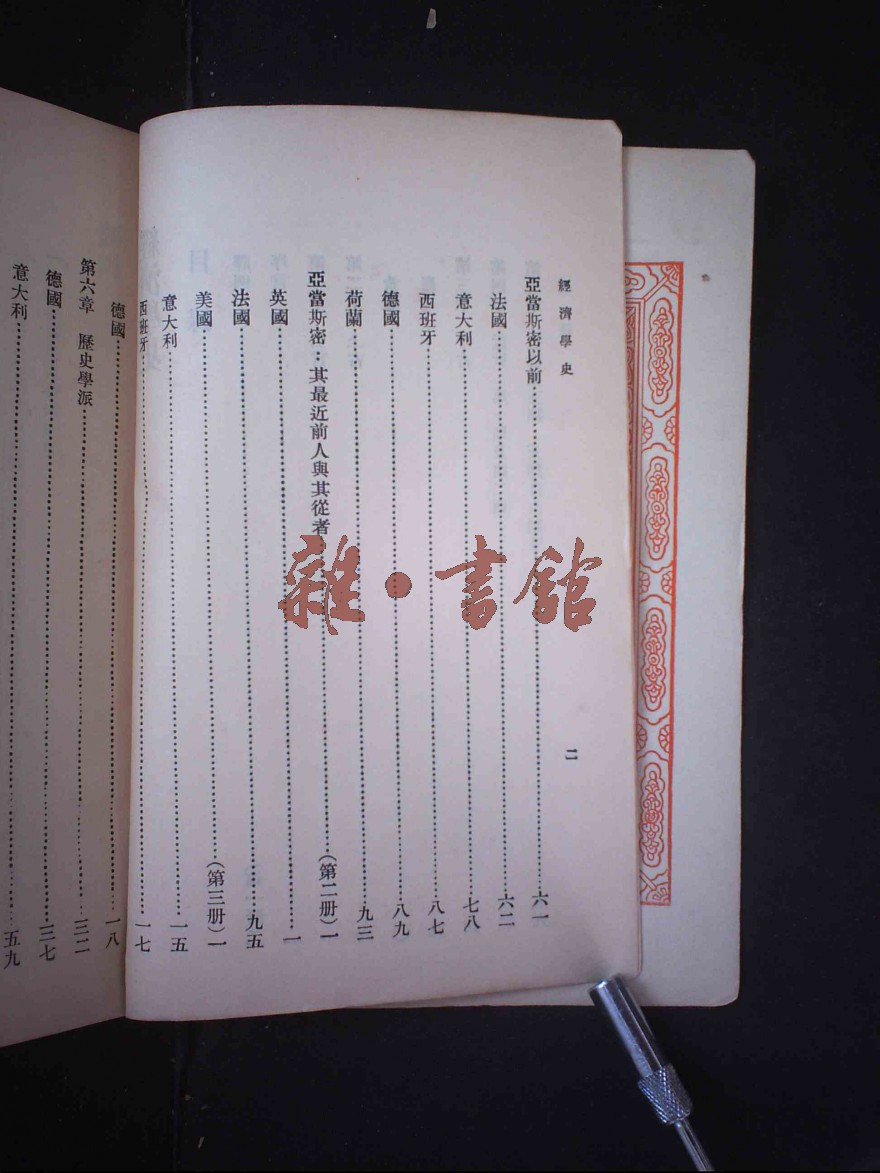 經濟學史
二
亞當斯密以前……六一
法國……六二
意大利……七八
西班牙……八七
德國……八九
荷蘭……九三
亞當斯密：其最近前人與其從者……（第二册）一
英國……一
法國……九五
美國……（第三册）一
意大利……一五
西班牙……一七
德國……一八
第六章　歷史學派……三二
德國……三七
意大利……五九
雜·書館